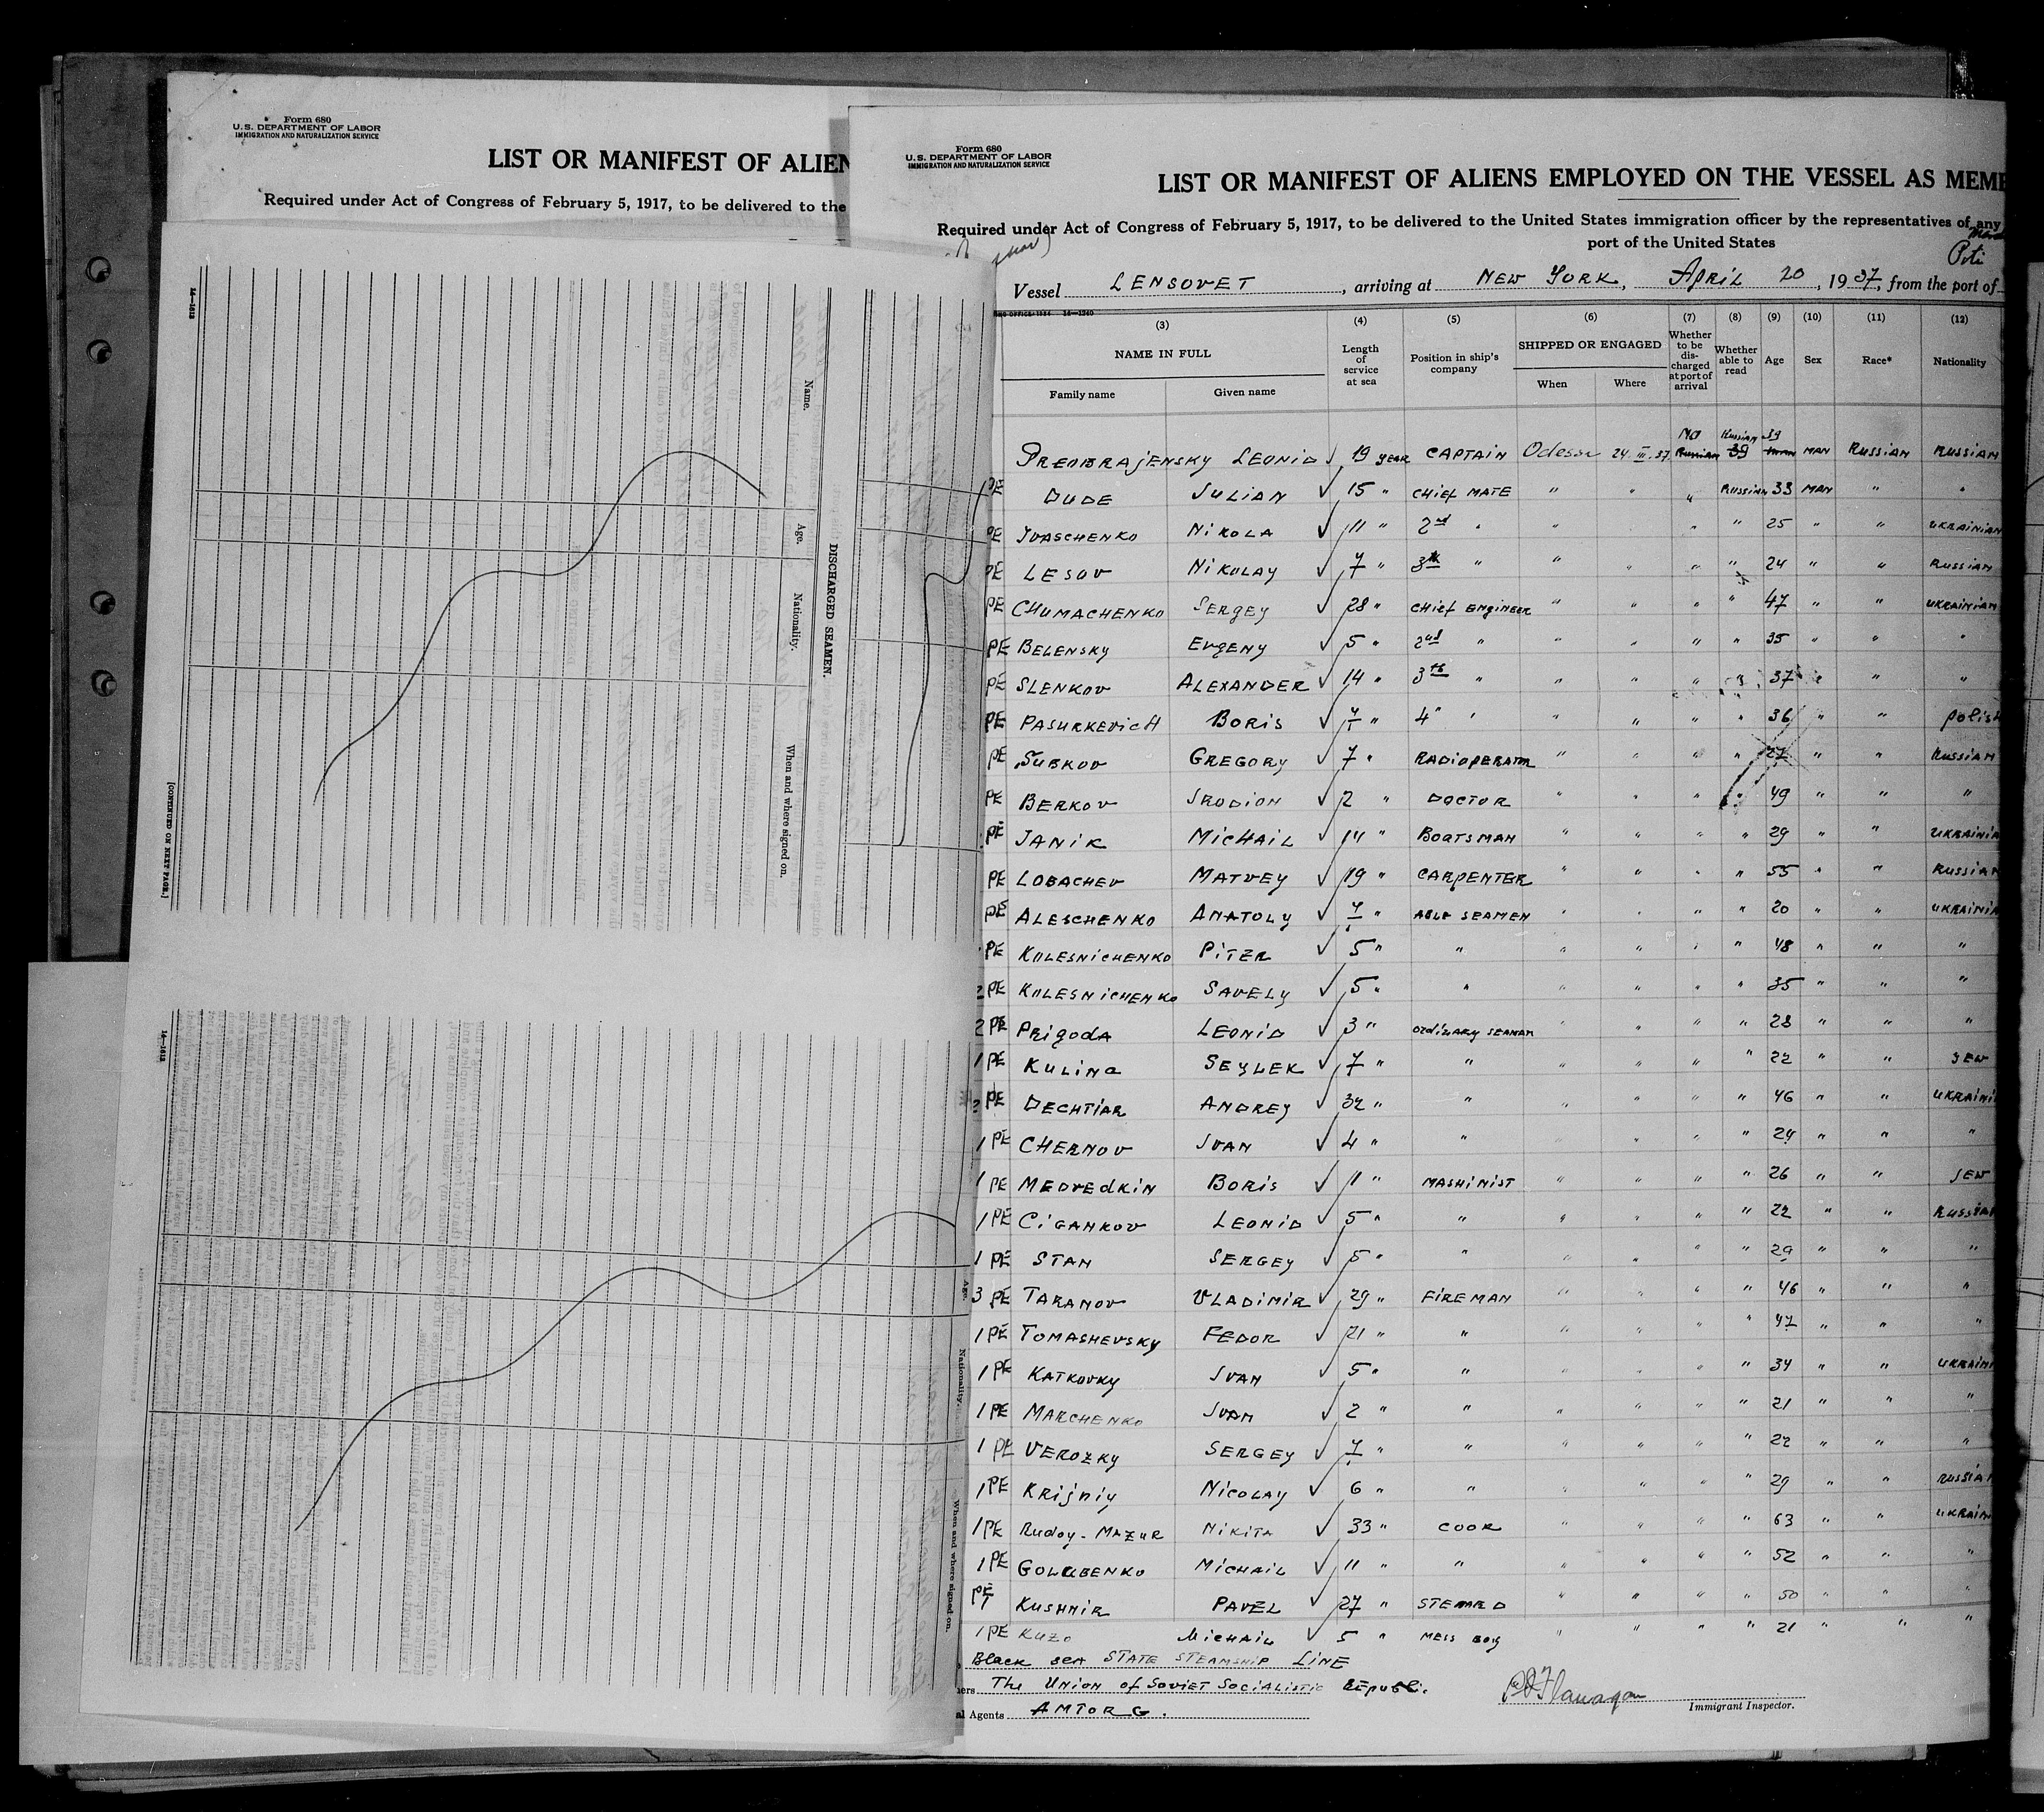 Form 680
U.S. DEPARTMENT OF LABOR
IMMIGRATION AND NATURALIZATION SERVICE
LIST OR MANIFEST OF ALIEN
Required under Act of Congress of February 5, 1917, to be delivered to the
14—1813
Name.
Age.
Nationality.
When and where signed on.
DISCHARGED SEAMEN.
[CONTINUED ON NEXT PAGE.]
14—1813
Age.
Nationality.
When and where signed on.
Form 680
U.S. DEPARTMENT OF LABOR
IMMIGRATION AND NATURALIZATION SERVICE
LIST OR MANIFEST OF ALIENS EMPLOYED ON THE VESSEL AS MEMB
Required under Act of Congress of February 5, 1917, to be delivered to the United States immigration officer by the representatives of any
port of the United States
Poti
Vessel LENSOVET, arriving at NEW YORK, APRIL 20, 1937, from the port of
(3) (4) (5) (6) (7) (8) (9) (10) (11) (12)
NAME IN FULL Length of service at sea Position in ship's company SHIPPED OR ENGAGED Whether to be discharged at port of arrival Whether able to read Age Sex Race* Nationality
Family name Given name When Where
No Russian 39
PREOBRAJENSKY LEONID √ 19 YEAR CAPTAIN Odessa 24.III.37 Russian 39 MAN RUSSIAN RUSSIAN
PE DUDE JULIAN √ 15 " CHIEF MATE " " " RUSSIAN 33 MAN " "
PE JVASCHENKO NIKOLA √ 11 " 2nd " " " " " 25 " " UKRAINIAN
PE LESOV NIKOLAY √ 7 " 3th " " " " " 24 " " RUSSIAN
PE CHUMACHENKO SERGEY √ 28 " CHIEF ENGINEER " " " " 47 " " UKRAINIAN
PE BELENSKY EVGENY √ 5 " 2nd " " " " " 35 " " "
PE SLENKOV ALEXANDER √ 14 " 3th " " " " " 37 " " "
PE PASURKEVICH BORIS √ 7 " 4" " " " " " 36 " " POLISH
PE SUBKOV GREGORY √ 7 " RADIOPERATOR " " " " 27 " " RUSSIAN
PE BERKOV JRODION √ 2 " DOCTOR " " " " 49 " " "
PE JANIK MICHAIL √ 14 " BOATSMAN " " " " 29 " " UKRAINIA
PE LOBACHEV MATVEY √ 19 " CARPENTER " " " " 55 " " RUSSIAN
PE ALESCHENKO ANATOLY √ 7 " ABLE SEAMEN " " " " 20 " " UKRAINIA
PE KOLESNICHENKO PITER √ 5 " " " " " " 48 " " "
2 PE KOLESNICHENKO SAVELY √ 5 " " " " " " 35 " " "
2 PE PRIGODA LEONID √ 3 " ORDINARY SEAMAN " " " " 28 " " "
1 PE KULINA SEYLEK √ 7 " " " " " " 22 " " JEW
2 PE DECHTIAR ANDREY √ 32 " " " " " " 46 " " UKRAINI
1 PE CHERNOV JVAN √ 4 " " " " " " 24 " " "
1 PE MEDVEDKIN BORIS √ 11 " MASHINIST " " " " 26 " " JEW
1 PE CIGANKOV LEONID √ 5 " " " " " " 22 " " RUSSIAN
1 PE STAN SERGEY √ 5 " " " " " " 29 " " "
3 PE TARANOV VLADIMIR √ 29 " FIREMAN " " " " 46 " " "
1 PE TOMASHEVSKY FEDOR √ 21 " " " " " " 47 " " "
1 PE KATKOVKY JVAN √ 5 " " " " " " 34 " " UKRAINI
1 PE MARCHENKO JVAN √ 2 " " " " " " 21 " " "
1 PE VEROZKY SERGEY √ 7 " " " " " " 22 " " "
1 PE KRIJNIY NICOLAY √ 6 " " " " " " 29 " " RUSSIAN
1 PE RUDOY-MAZUR NIKITA √ 33 " COOK " " " " 63 " " UKRAIN
1 PE GOLUBENKO MICHAIL √ 11 " " " " " " 52 " " "
PE KUSHNIR PAVEL √ 27 " STEWARD " " " " 50 " " "
1 PE KUZO MICHAIL √ 5 " MESS BOY " " " " 21 " " "
Black sea STATE STEAMSHIP LINE
ners The Union of Soviet Socialistic Republic.
al Agents AMTORG.
Flanagan
Immigrant Inspector.